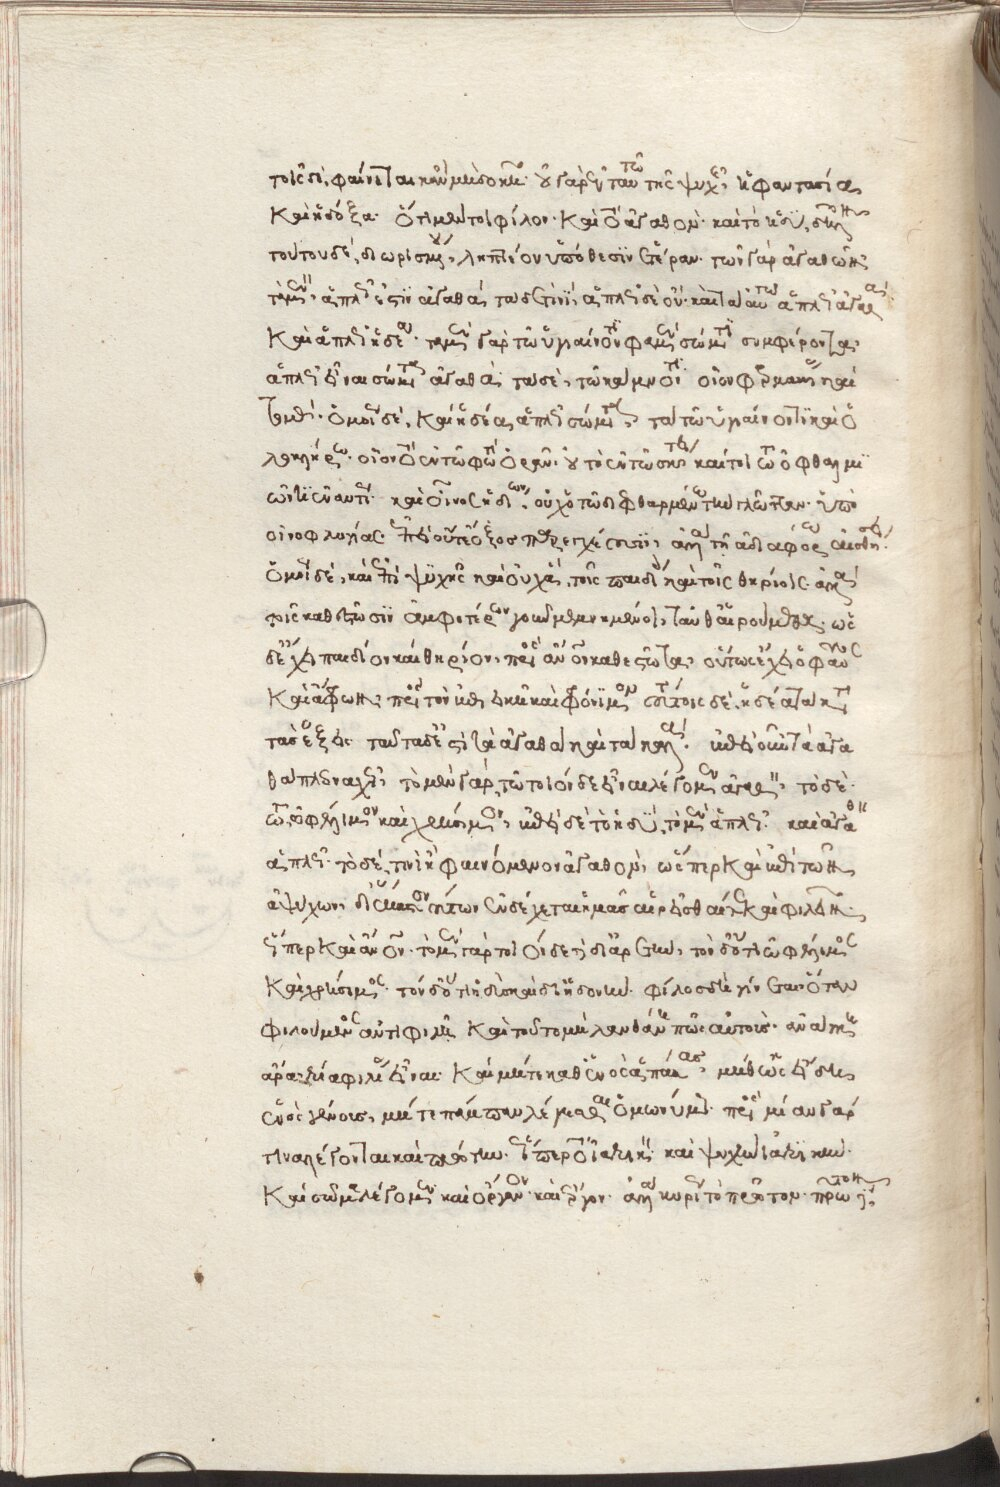 τοῖς δὲ φαίνεται κἂν μὴ δοκῆ· οὐ γὰρ ἐν ταυτῶ τῆς ψυχῆς ἡ φαντασία
καὶ ἡ δόξα· ὅτι μέντοι φίλον· καὶ τὸ ἀγαθὸν· καὶ τὸ ἡδὺ, δῆλον
τούτου δὲ, διωρισμένου, ληπτέον ὑπόθεσιν ἑτέραν· τῶν γὰρ ἀγαθῶν
τὰ μὲν, ἁπλῶς ἐστὶν ἀγαθά· τὰ δὲ τινί, ἁπλῶς δὲ οὔ· καὶ τὰ αὐτὰ ἁπλῶς ἀγαθὰ
καὶ ἁπλῶς ἡδέα· τὰ μὲν γὰρ τῶ ὑγιαίνοντι φαμὲν σώματι συμφέροντα,
ἁπλῶς εἶναι σώματι ἀγαθά· τὰ δὲ, τῶ κάμνοντι οὔ· οἷον φαρμακείας καὶ
τομάς· ὁμοίως δὲ, καὶ ἡδέα ἁπλῶς σώματι, τὰ τῶ ὑγιαίνοντι καὶ ὁ
λοκλήρω· οἷον τὸ ἐν τῶ φωτὶ ὁρᾶν· οὐ τὸ ἐν τῶ σκότει καίτοι τῶ ὀφθαλμι
ῶντι ἐναντίως· καὶ οἶνος ἡδίων, οὐχ ὁ τῶ διεφθαρμένω τὴν γλῶτταν· ὑπὸ
οἰνοφλυγίας· ἐπεὶ οὔτε ὄξος παρεγχέουσιν, ἀλλὰ τῆ ἀδιαφόρω αἰσθήσει·
ὁμοίως δὲ, καὶ ἐπὶ ψυχῆς καὶ οὐχ ἃ, τοῖς παιδίοις καὶ τοῖς θηρίοις· ἀλλὰ
τοῖς καθεστῶσιν ἀμφοτέρων γοῦν μεμνημένοι, ταῦθ' αἱρούμεθα· ὡς
δὲ ἔχει παιδίον καὶ θηρίον, πρὸς ἄνθρωπον καθεστῶτα, οὕτως ἔχει ὁ φαῦλος
καὶ ἄφρων, πρὸς τὸν ἐπιεικῆ καὶ φρόνιμον τούτοις δὲ, ἡδέα τὰ κατὰ
τὰς ἕξεις· ταῦτα δὲ ἐστὶ τὰ ἀγαθὰ καὶ τὰ καλά· ἐπεὶ οὖν τὰ ἀγα
θὰ πλεοναχῶς, τὸ μὲν γὰρ, τῶ τοιόνδε εἶναι λέγομεν ἀγαθὸν, τὸ δὲ
τῶ ὠφέλιμον καὶ χρήσιμον, ἔτι δὲ τὸ ἡδὺ, τὸ μὲν ἁπλῶς· καὶ ἀγαθὸν
ἁπλῶς· τὸ δὲ, τινὶ ἢ φαινόμενον ἀγαθὸν, ὥσπερ καὶ ἐπὶ τῶν
ἀψύχων, δι' ἕκαστον τούτων ἐνδέχεται ἡμᾶς αἱρεῖσθαι καὶ φιλεῖν·
ὥσπερ καὶ ἄνθρωπον· τὸν μὲν γὰρ τοιόνδε, δι' ἀρετὴν, τὸν δὲ ὅτι ὠφέλιμος
καὶ χρήσιμος· τὸν δὲ ὅτι ἡδὺς καὶ δι' ἡδονὴν· φίλος δὲ γίνεται ὅταν
φιλούμενος ἀντιφιλῆ καὶ τοῦτο μὴ λανθάνη πως αὐτοὺς· ἀνάγκη
ἄρα τρία φιλίας εἴδη εἶναι· καὶ μήτε καθ' ἓν ὡς ἁπάσας, μήθ' ὡς εἴδη
ἑνὸς γένους, μήτε πάμπαν λέγεσθαι ὁμωνύμως· πρὸς μίαν γάρ
τινα λέγονται καὶ πρώτην· ὥσπερ τὸ ἰατρικὸν· καὶ ψυχὴν ἰατρικὴν·
καὶ σῶμα λέγομεν καὶ ὄργανον· καὶ ἔργον· ἀλλὰ κυρίως τὸ πρῶτον· πρῶτον δ'